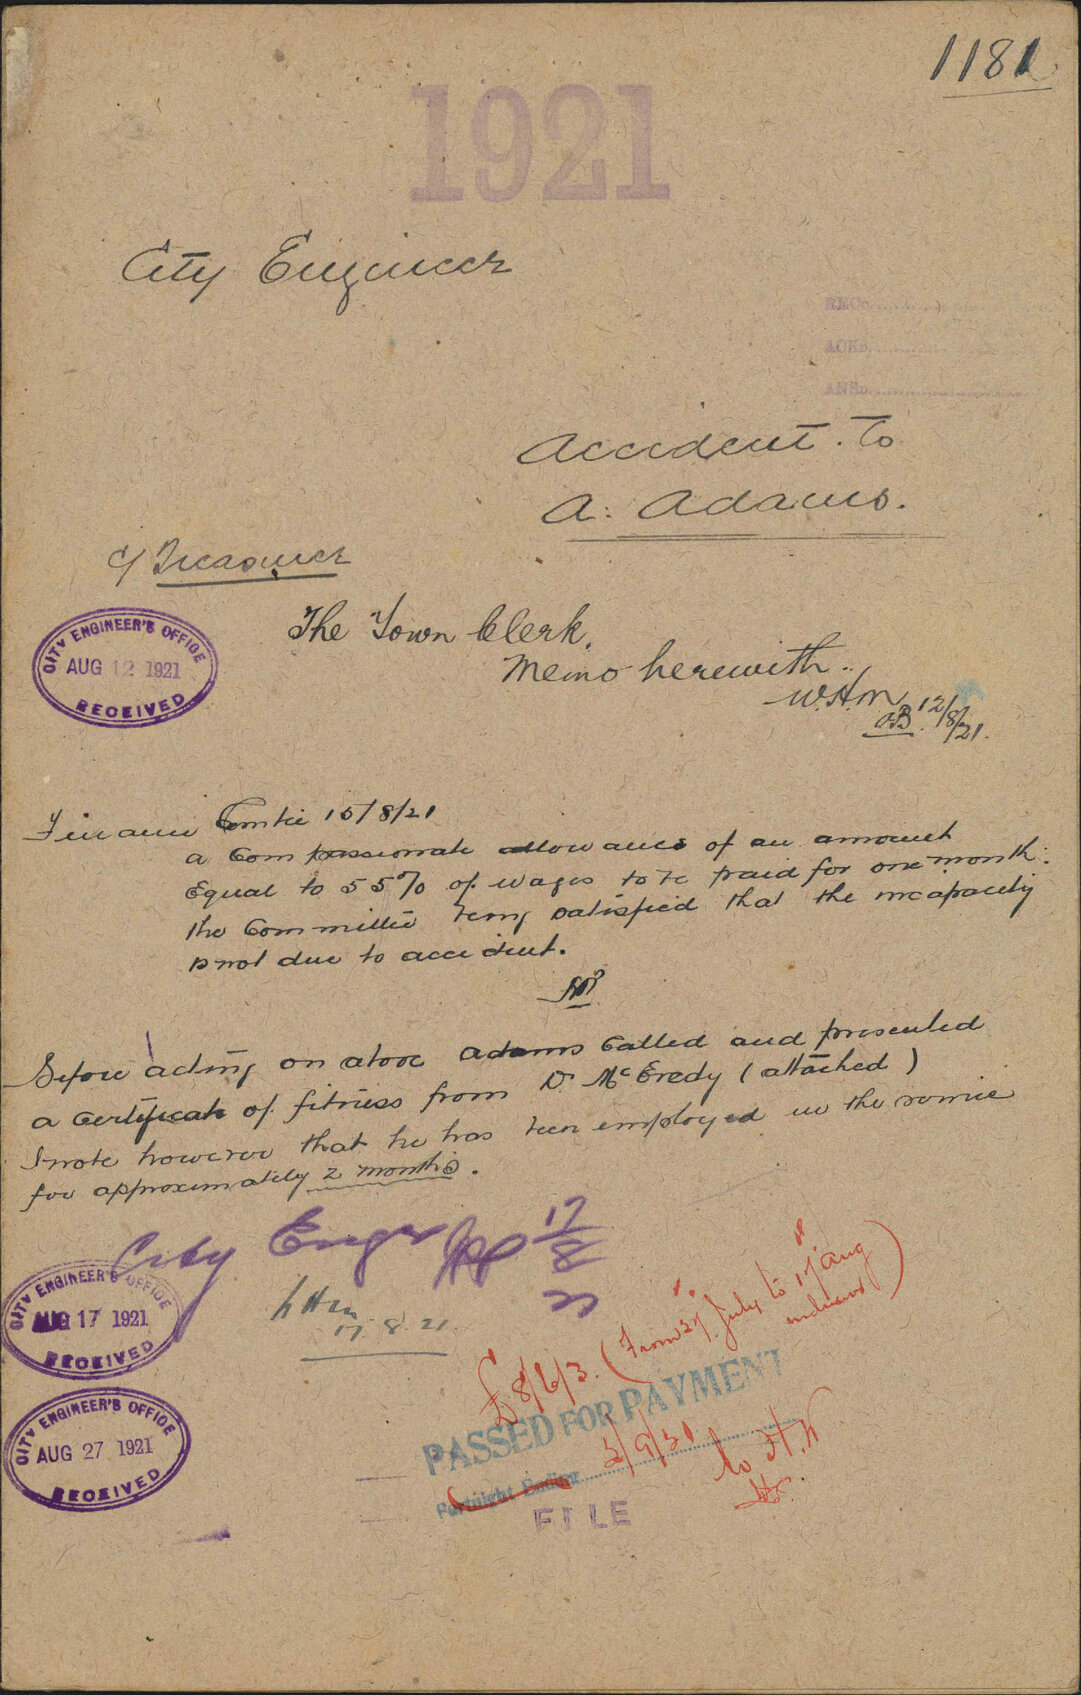 1181
1921
City Engineer
REC
ACKD
ANSD
Accident. to
A. Adams.
C/ Treasurer
CITY ENGINEER'S OFFICE
AUG 12 1921
RECEIVED
The Town Clerk.
Memo herewith..
W.H.M
12/8/21.
Finance Comtee 15/8/21
a Compassionate allowance of an amount
Equal to 55% of wages to be paid for one month.
the Committee being satisfied that the incapacity
is not due to accident.
Before acting on above Adams called and presented
a certificate of fitness from Dr McCredy (attached)
I note however that he has been employed in the service
for approximately 2 months.
City Engr 17/8/21
CITY ENGINEER'S OFFICE
AUG 17 1921
RECEIVED
17.8.21.
£8/6/3. (From 27" July to 17" Aug
inclusive)
PASSED FOR PAYMENT
Fortnight Ending
CITY ENGINEER'S OFFICE
AUG 27 1921
RECEIVED
FILE